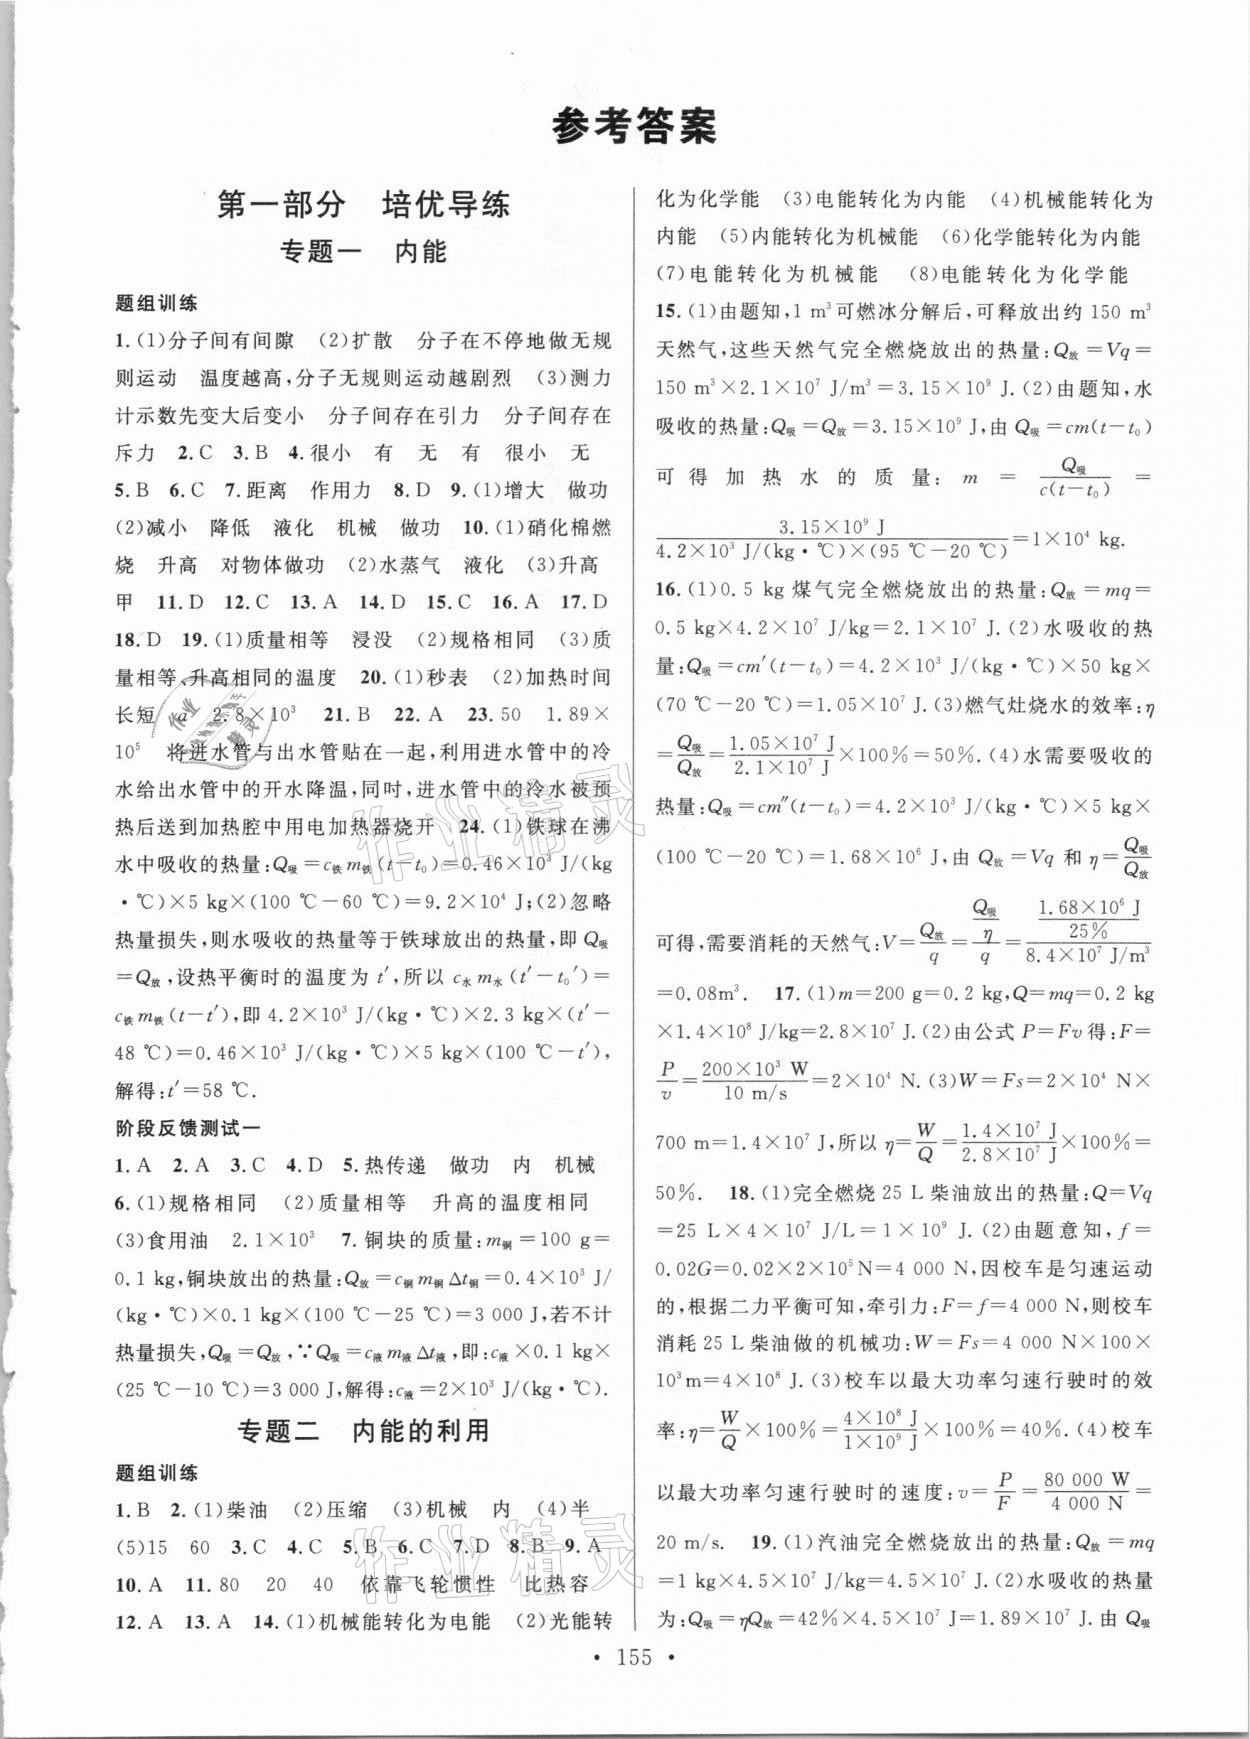 参考答案
第一部分 培优导练
专题一 内能
题组训练
1.(1)分子间有间隙 (2)扩散 分子在不停地做无规
则运动 温度越高,分子无规则运动越剧烈 (3)测力
计示数先变大后变小 分子间存在引力 分子间存在
斥力 2.C 3.B 4.很小 有 无 有 很小 无
5.B 6.C 7.距离 作用力 8.D 9.(1)增大 做功
(2)减小 降低 液化 机械 做功 10.(1)硝化棉燃
烧 升高 对物体做功 (2)水蒸气 液化 (3)升高
甲 11.D 12.C 13.A 14.D 15.C 16.A 17.D
18.D 19.(1)质量相等 浸没 (2)规格相同 (3)质
量相等、升高相同的温度 20.(1)秒表 (2)加热时间
长短 a 2.8×10³ 21.B 22.A 23.50 1.89×
10⁵ 将进水管与出水管贴在一起,利用进水管中的冷
水给出水管中的开水降温,同时,进水管中的冷水被预
热后送到加热腔中用电加热器烧开 24.(1)铁球在沸
水中吸收的热量:Q吸=c铁m铁(t-t₀)=0.46×10³ J/(kg
·℃)×5 kg×(100 ℃-60 ℃)=9.2×10⁴ J;(2)忽略
热量损失,则水吸收的热量等于铁球放出的热量,即Q吸
=Q放,设热平衡时的温度为 t′,所以 c水m水(t′-t₀′)=
c铁m铁(t-t′),即 4.2×10³ J/(kg·℃)×2.3 kg×(t′-
48 ℃)=0.46×10³ J/(kg·℃)×5 kg×(100 ℃-t′),
解得:t′=58 ℃.
阶段反馈测试一
1.A 2.A 3.C 4.D 5.热传递 做功 内 机械
6.(1)规格相同 (2)质量相等 升高的温度相同
(3)食用油 2.1×10³ 7.铜块的质量:m铜=100 g=
0.1 kg,铜块放出的热量:Q放=c铜m铜Δt铜=0.4×10³ J/
(kg·℃)×0.1 kg×(100 ℃-25 ℃)=3 000 J,若不计
热量损失,Q吸=Q放,∵Q吸=c液m液Δt液,即:c液×0.1 kg×
(25 ℃-10 ℃)=3 000 J,解得:c液=2×10³ J/(kg·℃).
专题二 内能的利用
题组训练
1.B 2.(1)柴油 (2)压缩 (3)机械 内 (4)半
(5)15 60 3.C 4.C 5.B 6.C 7.D 8.B 9.A
10.A 11.80 20 40 依靠飞轮惯性 比热容
12.A 13.A 14.(1)机械能转化为电能 (2)光能转
化为化学能 (3)电能转化为内能 (4)机械能转化为
内能 (5)内能转化为机械能 (6)化学能转化为内能
(7)电能转化为机械能 (8)电能转化为化学能
15.(1)由题知,1 m³可燃冰分解后,可释放出约 150 m³
天然气,这些天然气完全燃烧放出的热量:Q放=Vq=
150 m³×2.1×10⁷ J/m³=3.15×10⁹ J.(2)由题知,水
吸收的热量:Q吸=Q放=3.15×10⁹ J,由 Q吸=cm(t-t₀)
可得加热水的质量:m=Q吸/c(t-t₀)=
3.15×10⁹ J/4.2×10³ J/(kg·℃)×(95 ℃-20 ℃)=1×10⁴ kg.
16.(1)0.5 kg 煤气完全燃烧放出的热量:Q放=mq=
0.5 kg×4.2×10⁷ J/kg=2.1×10⁷ J.(2)水吸收的热
量:Q吸=cm′(t-t₀)=4.2×10³ J/(kg·℃)×50 kg×
(70 ℃-20 ℃)=1.05×10⁷ J.(3)燃气灶烧水的效率:η
=Q吸/Q放=1.05×10⁷ J/2.1×10⁷ J×100%=50%.(4)水需要吸收的
热量:Q吸=cm″(t-t₀)=4.2×10³ J/(kg·℃)×5 kg×
(100 ℃-20 ℃)=1.68×10⁶ J,由 Q放=Vq 和 η=Q吸/Q放
可得,需要消耗的天然气:V=Q放/q=(Q吸/η)/q=(1.68×10⁶ J/25%)/8.4×10⁷ J/m³
=0.08m³. 17.(1)m=200 g=0.2 kg,Q=mq=0.2 kg
×1.4×10⁸ J/kg=2.8×10⁷ J.(2)由公式 P=Fv得:F=
P/v=200×10³ W/10 m/s=2×10⁴ N.(3)W=Fs=2×10⁴ N×
700 m=1.4×10⁷ J,所以 η=W/Q=1.4×10⁷ J/2.8×10⁷ J×100%=
50%. 18.(1)完全燃烧 25 L 柴油放出的热量:Q=Vq
=25 L×4×10⁷ J/L=1×10⁹ J.(2)由题意知,f=
0.02G=0.02×2×10⁵N=4 000 N,因校车是匀速运动
的,根据二力平衡可知,牵引力:F=f=4 000 N,则校车
消耗 25 L 柴油做的机械功:W=Fs=4 000 N×100×
10³m=4×10⁸ J.(3)校车以最大功率匀速行驶时的效
率:η=W/Q×100%=4×10⁸ J/1×10⁹ J×100%=40%.(4)校车
以最大功率匀速行驶时的速度:v=P/F=80 000 W/4 000 N=
20 m/s. 19.(1)汽油完全燃烧放出的热量:Q放=mq
=1 kg×4.5×10⁷ J/kg=4.5×10⁷ J.(2)水吸收的热量
为:Q吸=ηQ放=42%×4.5×10⁷ J=1.89×10⁷ J.由 Q吸
· 155 ·
作业精灵
作业精灵